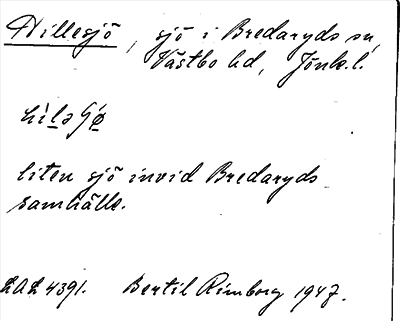 Hillesjö, sjö i Bredaryds sn,
Västbo hd, Jönk.l.
hìlǝ ʃø
liten sjö invid Bredaryds
samhälle.
LAL 4391. Bertil Rimborg 1947.